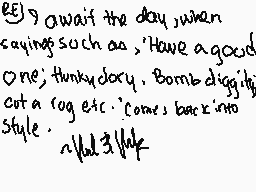 (RE) I await the day, when
sayings such as, 'Have a good
one; Hunky dory. Bomb diggity,
cut a rug etc.' comes back into
style.